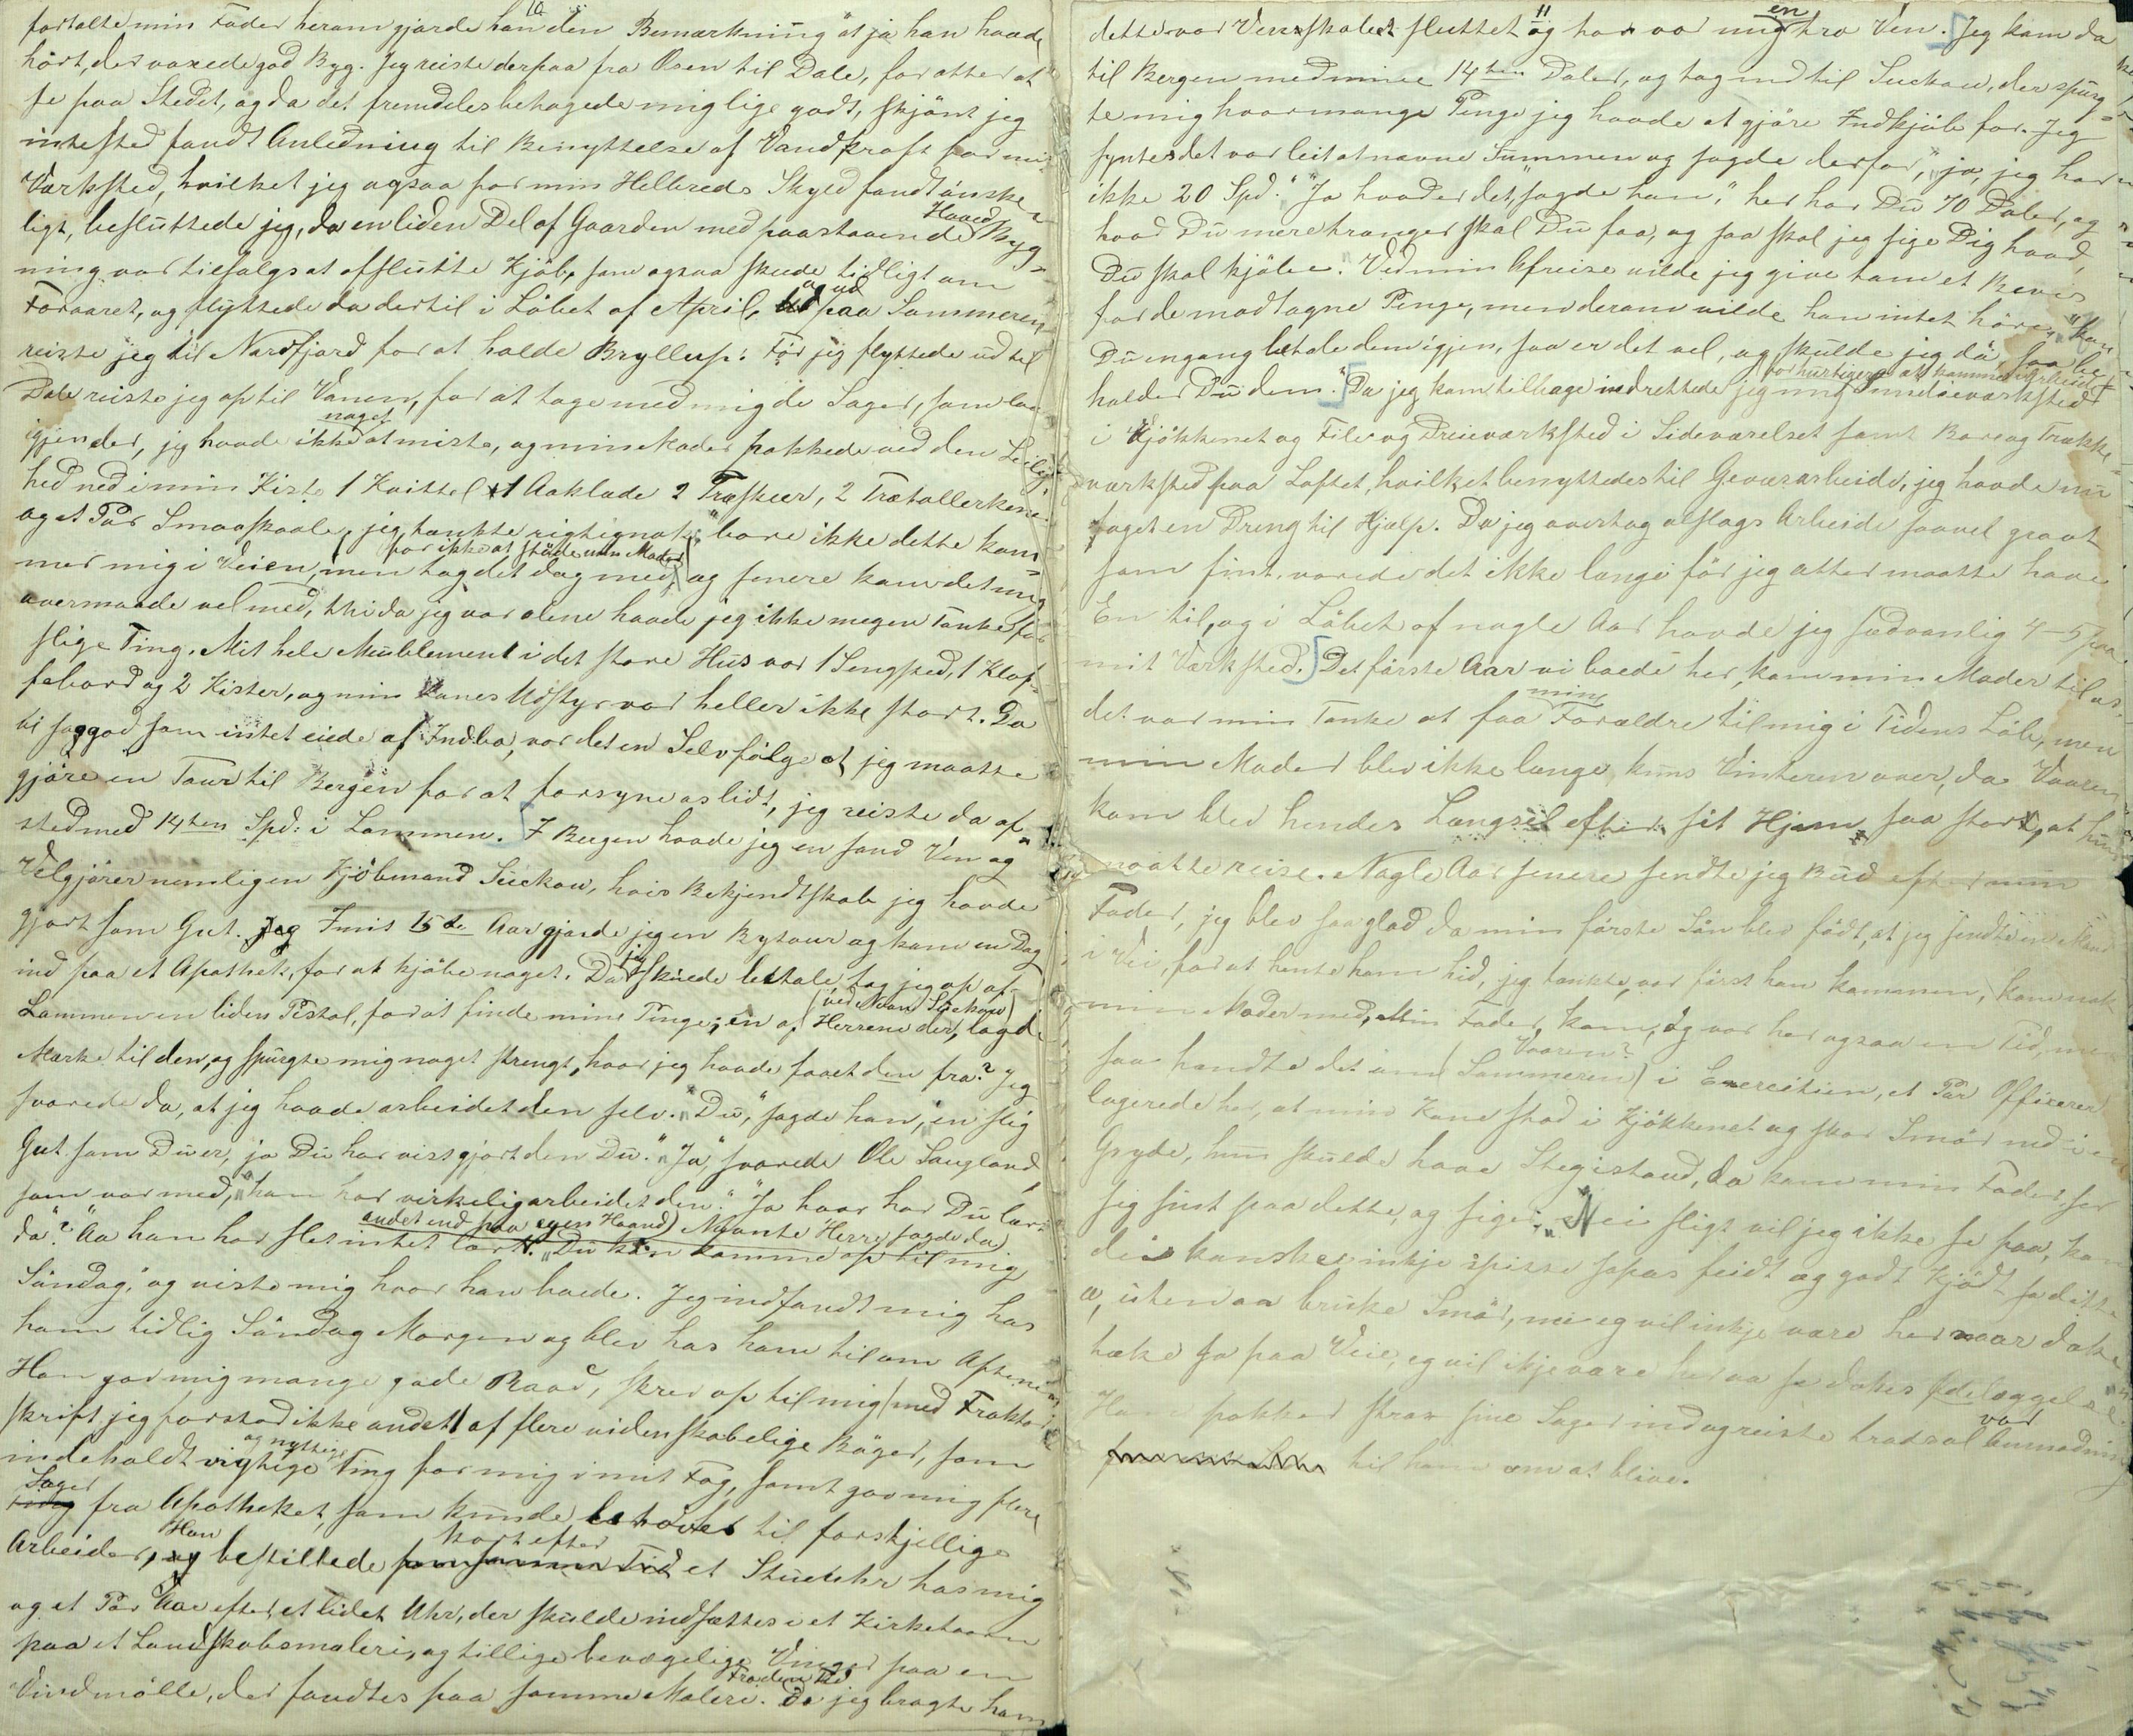 10
fortalte min Fader herom gjorde han den Bemærkning "at ja han havde
hört, der voxede god Byg. Jeg reiste derpaa fra Osen til Dale, for atter at
se paa Stedet, og da det fremdeles behagede mig lige godt, skjönt jeg
intested fandt Anledning til Benyttelse af Vandkraft for mit
Værksted, hvilket jeg ogsaa for min Helbreds Skyld fandt önske-
ligt, besluttede jeg, da en liden Del af Gaarden med paastaaende Hoved Byg-
ning var tilsalgs at afslutte Kjöb, som ogsaa skede tidligt om
Foraaret, og flyttede da dertil i Löbet af April, og ud paa Sommeren
reiste jeg til Nordfjord for at holde Bryllup. Før jeg flyttede ud til
Dale reiste jeg op til Vanen, for at tage med mig de Sager, som laa
igjen der, jeg havde ikke noget at miste, og min Moder pakkede ved den Leilig-
hed ned i min Kiste 1 Kvittel 1 Aaklæde 2 Træskeer, 2 Trætallerkener
og et Par Smaaskaale, jeg tænkte rigtignok: "bare ikke dette kom-
mer mig i Veien, men tog det dog med, for ikke at støde min Moder og senere kom det mig
overmaade vel med, thi da jeg var alene havde jeg ikke megen Tanke for
slige Ting. Mit hele Meublement i det store Hus var 1 Sengsted, 1 Klap-
febord og 2 Kister, og min Kones Udstyr var heller ikke stort. Da
vi saagod som intet eiede af Indbo, var det en Selvfølge at jeg maatte
gjöre en Tour til Bergen for at forsyne os lidt, jeg reiste da af-
sted med 14ten Spd: i Lommen. I Bergen havde jeg en sand Ven og
Velgjörer nemligen Kjöbmand Suckow, hvis Bekjendtskab jeg havde
gjort som Gut. I mit 15de Aar gjorde jeg en Bytour og kom en Dag
ind paa et Apothek, for at kjöbe noget. Da jeg skulde betale tog jeg op af
Lommen en liden Pistol, for at finde mine Penge, en af Herrene der, (ved Navn Suckow) lagde
Mærke til den, og spurgte mig noget strengt, hvor jeg havde faaet den fra? Jeg
svarede da, at jeg havde arbeidet den selv. "Du," sagde han, "en slig
Gut som Du er, ja Du har vist gjort den Du." "Ja," svarede Ole Sangland,
som var med, "han har virkelig arbeidet den." "Ja hvor har Du lært
da"? "Aa han har slet intet lært. andet end paa egen Haand) Nævnte Herre sagde da) "Du kan komme op til mig
Söndag," og viste mig hvor han boede. Jeg indfandt mig hos
ham tidlig Söndag Morgen og blev hos ham til om Aftenen
Han gav mig mange gode Raad, skrev op til mig (med Fraktur
skrift, jeg forstod ikke andet) af flere videnskabelige Böger, som
indeholdt vigtige og nyttige Ting for mig i mit Fag, samt gav mig flere
Sager fra Apotheket, som kunde behøves til forskjellige
Arbeider, Han bestillede kort efter et Stueuhr hos mig
og et Par Aar efter, et lidet Uhr, der skulde indsættes i et Kirketaarn
paa et Landskabsmaleri, og tillige bevægelige Vinger paa en
Vindmölle, der fandtes paa samme Maleri. Fra den Tid Da jeg bragte ham
11
dette var Venskabet sluttet og han var mig en tro Ven. Jeg kom da
til Bergen med mine 14ten Daler, og tog ind til Suckow, der spurg-
te mig hvor mange Penge jeg havde at gjöre Indkjöb for. Jeg
syntes det var leit at nævne Summen og sagde derfor, "ja, jeg har
ikke 20 Spd." "Ja hvad er det," sagde han, "her har Du 70 Daler, og
hvad Du mere trænger skal Du faa, og saa skal jeg sige Dig hvad
Du skal kjöbe." Ved min Afreise vilde jeg give ham et Bevis
for de modtagne Penge, men derom vilde han intet höre, "kan
Du engang betale dem igjen, saa er det vel, og skulde jeg dö, saa be-
holder Du dem." Da jeg kom tilbage indrettede jeg mig for hurtigere at komme i Arbeide Smedieværksted
i Kjökkenet og File og Dreieværksted i Sideværelset samt Bore og Trække-
værksted paa Loftet, hvilket benyttedes til Geværarbeide, jeg havde nu
taget en Dreng til Hjælp. Da jeg overtog alslags Arbeide saavel grovt
som fint, varede det ikke længe för jeg atter maatte have
En til, og i Löbet af nogle Aar havde jeg sædvanlig 4-5 paa
mit Værksted. Det förste Aar vi boede her, kom min Moder til os,
det var min Tanke at faa mine Forældre til mig i Tidens Löb, men
min Moder blev ikke længe, kuns Vinteren over, da Vaaren
kom blev hendes Længsel efter sit Hjem saa stor, at hun
maatte reise. Nogle Aar senere sendte jeg Bud efter min
Fader, jeg blev saa glad da min förste Sön blev födt, at jeg sendte en Mand
i Vei, for at hente ham hid, jeg tænkte, var först han kommen, kom nok
min Moder med. Min Fader kom, og var her ogsaa en Tid, men
saa hændte det um (Sommeren) Vaaren? i Exercitien, et Par Officerer
logerede her, at min Kone stod i Kjökkenet og skar Smör ned i en
Gryde, hun skulde have Steg istand, da kom min Fader, ser
sig sint paa dette, og siger: "Nei sligt vil jeg ikke se paa, kan
dei kanske inkje spisse sopas feidt og godt Kjöd so ditta
æ, uten aa bruke Smör, nei eg vil inkje være her naar dokke
tæke so paa Veie, eg vil ikje være her aa se dokes Ødelæggelse."
Han pakker strax sine Sager ind og reiste trods al vor Anmodning
til ham om at blive.